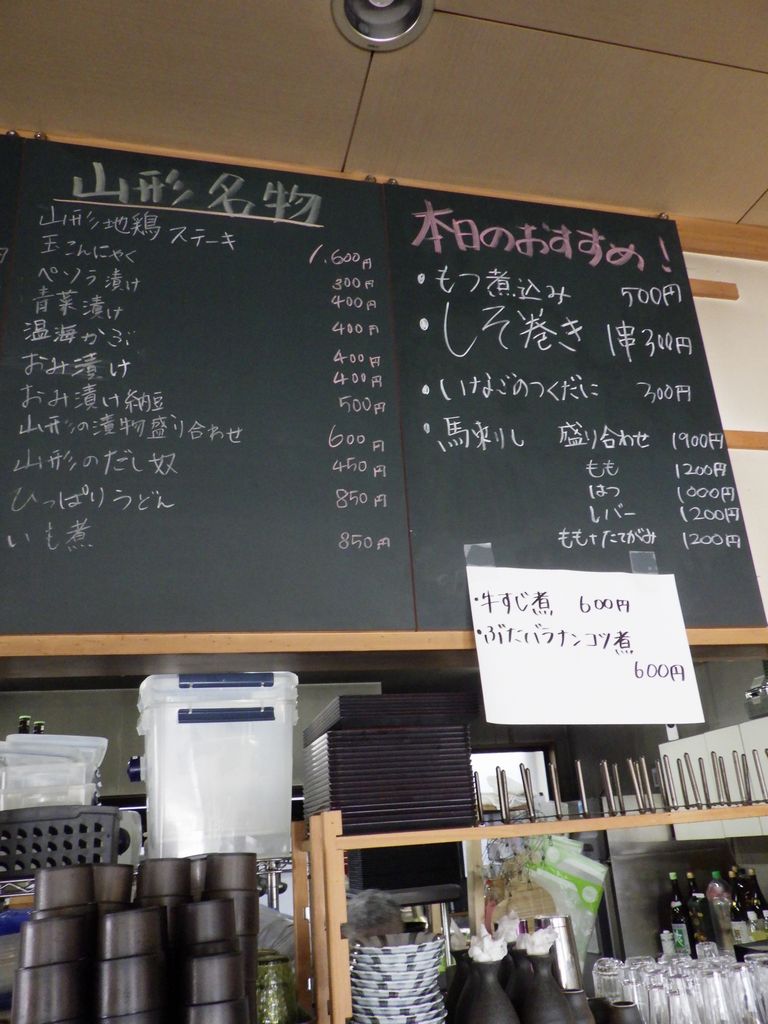 山形名物
山形地鶏ステーキ 1,600円
玉こんにゃく 300円
ペソラ漬け 400円
青菜漬け 400円
温海かぶ 400円
おみ漬け 400円
おみ漬け納豆 500円
山形の漬物盛り合わせ 600円
山形のだし奴 450円
ひっぱりうどん 850円
いも煮 850円
本日のおすすめ!
・もつ煮込み 500円
・しそ巻き 1串300円
・いなごのつくだに 300円
・馬刺し 盛り合わせ 1900円
もも 1200円
はつ 1000円
レバー 1200円
もも+たてがみ 1200円
・牛すじ煮 600円
・ぶたバラナンコツ煮
600円